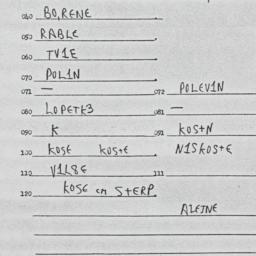 040 BO,RENE
050 RABLC
060 TV1E
070 POL1N
071 — 072 POLEV1N
080 LOPETE3 081 —
090 K 091 KOS+N
100 KOSE KOS+E N1SKOS+E
110 V1L8E 111
120 KOSE cm S+ERP
ALEJNE